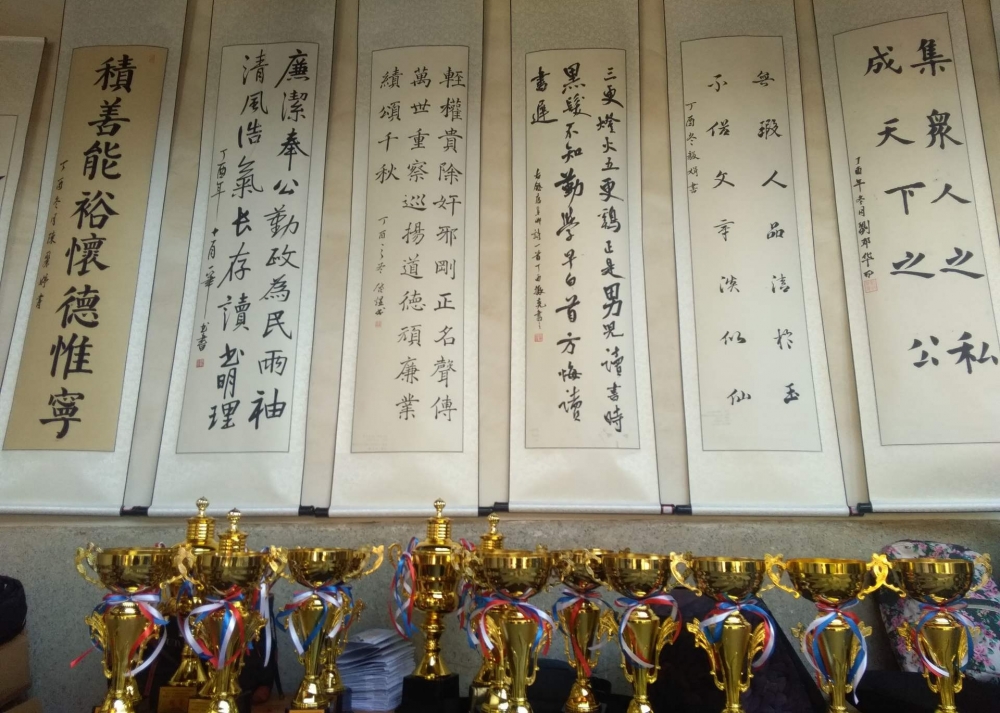 集眾人之私
成天下之公
丁酉年冬月劉邦華
無瑕人品清於玉
不俗文章淡似仙
丁酉冬
三更燈火五更鷄正是男兒讀書時
黑髮不知勤學早白首方悔讀
書遲
輕權貴除奸邪剛正名聲傳
萬世重察巡揚道德頑廉業
績頌千秋
丁酉之冬
廉潔奉公勤政為民兩袖
清風浩氣长存讀书明理
丁酉年十月
積善能裕懷德惟寧
丁酉冬月陳